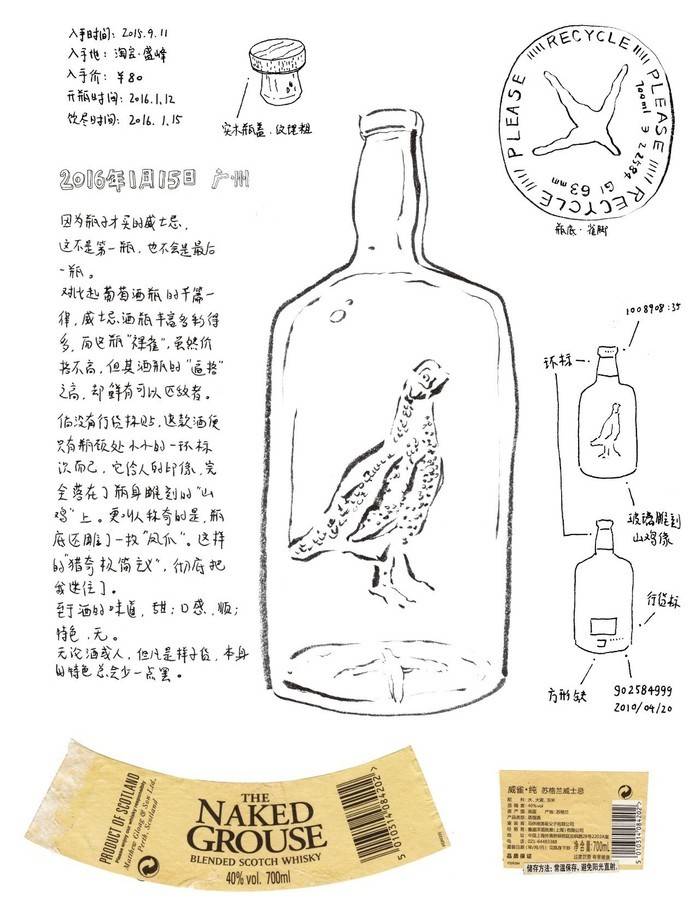 入手时间：2015.9.11
入手地：淘宝·盛峰
入手价：¥80
开瓶时间：2016.1.12
饮尽时间：2016.1.15
实木瓶盖，纹理粗
PLEASE RECYCLE PLEASE RECYCLE
700ml 22584 G1 63mm
瓶底·雀脚
2016年1月15日 广州
因为瓶子才买的威士忌，
这不是第一瓶，也不会是最后
一瓶。
对比起葡萄酒瓶的千篇一
律，威士忌酒瓶丰富多彩得
多，而这瓶“裸雀”，虽然价
格不高，但其酒瓶的“逼格”
之高，却鲜有可以匹敌者。
倘没有行货标贴，这款酒便
只有瓶颈处小小的一环标
识而已，它给人的印象，完
全落在了瓶身雕刻的“山
鸡”上。更叫人称奇的是，瓶
底还雕了一枚“凤爪”。这样
的“猎奇极简主义”，彻底把
我迷住了。
至于酒的味道，甜；口感，顺；
特色，无。
无论酒或人，但凡是样子货，本身
的特色总会少一点罢。
1008908:35
环标
玻璃雕刻
山鸡像
行货标
方形缺
902584999
2010/04/20
PRODUCT OF SCOTLAND
Please enjoy our whisky responsibly
Matthew Gloag & Son Ltd.
Perth, Scotland
THE
NAKED
GROUSE
BLENDED SCOTCH WHISKY
40% vol. 700ml
5010314084202
威雀·纯 苏格兰威士忌
净含量：700ml
过度饮酒 有害健康
储存方法：常温保存，避免阳光直射。
5010314084202